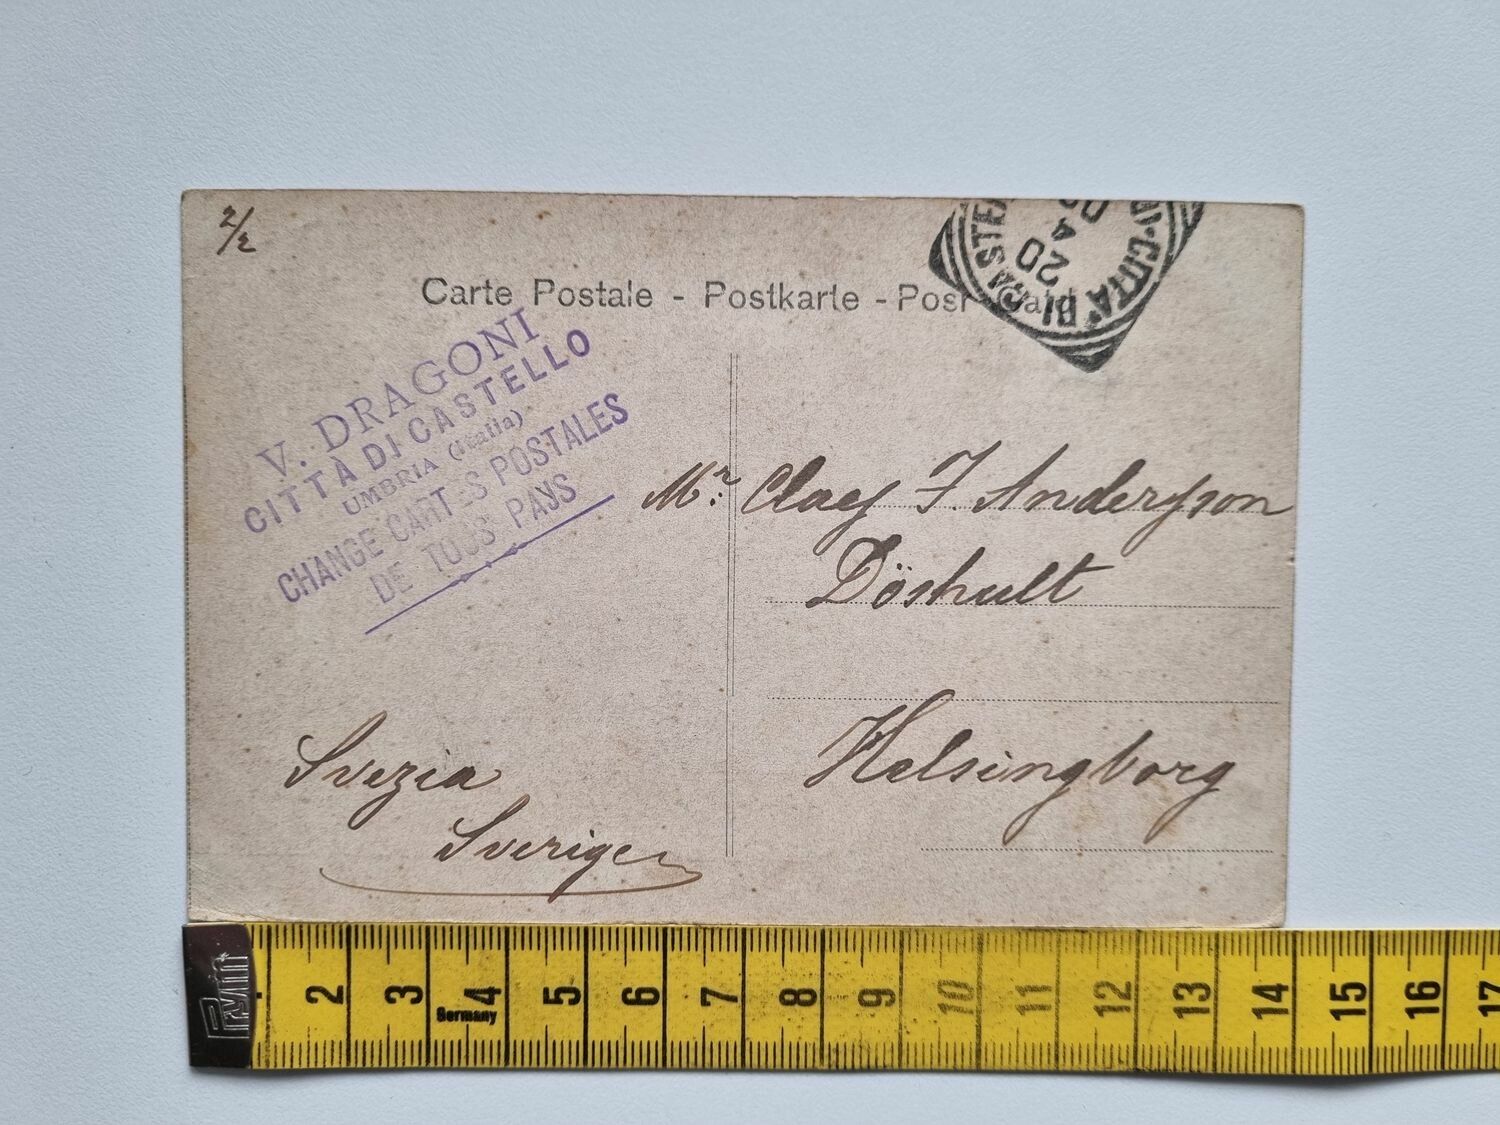 2/2
Carte Postale - Postkarte - Post Card
V. DRAGONI
CITTÀ DI CASTELLO
UMBRIA (Italia)
CHANGE CARTES POSTALES
DE TOUS PAYS
CITTÀ DI CASTE
20
Mr. Claes F. Andersson
Döshult
Helsingborg
Svezia
Sverige
Germany
2 3 4 5 6 7 8 9 10 11 12 13 14 15 16 17